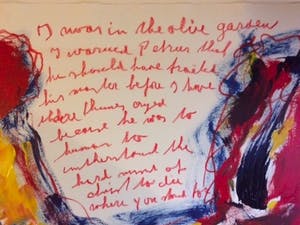 I was in the olive garden
I warned Petrus that
he should have
his master before I have
three times
because he was to
human to
understand the
hard mind of
christ to die
where you stand for